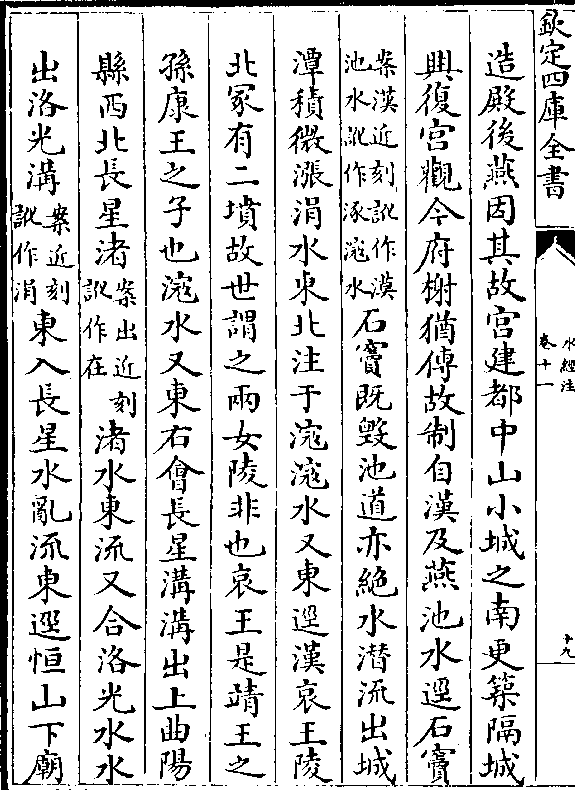 欽定四庫全書
水經注
卷十一
十九
造殿後燕因其故宫建都中山小城之南更築隔城
興復宫觀今府榭猶傳故制自漢及燕池水逕石竇
案漢近刻訛作漠
池水訛作涿滱水
石竇既毁池道亦絶水潜流出城
潭積微漲涓水東北注于滱滱水又東逕漢哀王陵
北冢有二墳故世謂之兩女陵非也哀王是靖王之
孫康王之子也滱水又東右會長星溝溝出上曲陽
縣西北長星渚
案出近刻
訛作在
渚水東流又合洛光水水
出洛光溝
案近刻
訛作涓
東入長星水亂流東逕恒山下廟